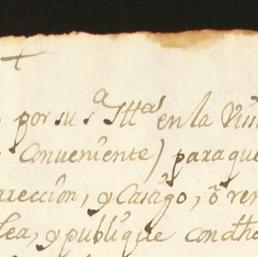 por su s.ª Ill.ªˢ en la
Conveniente) para que
rreccion, y Castigo, ô
lea, y publique con